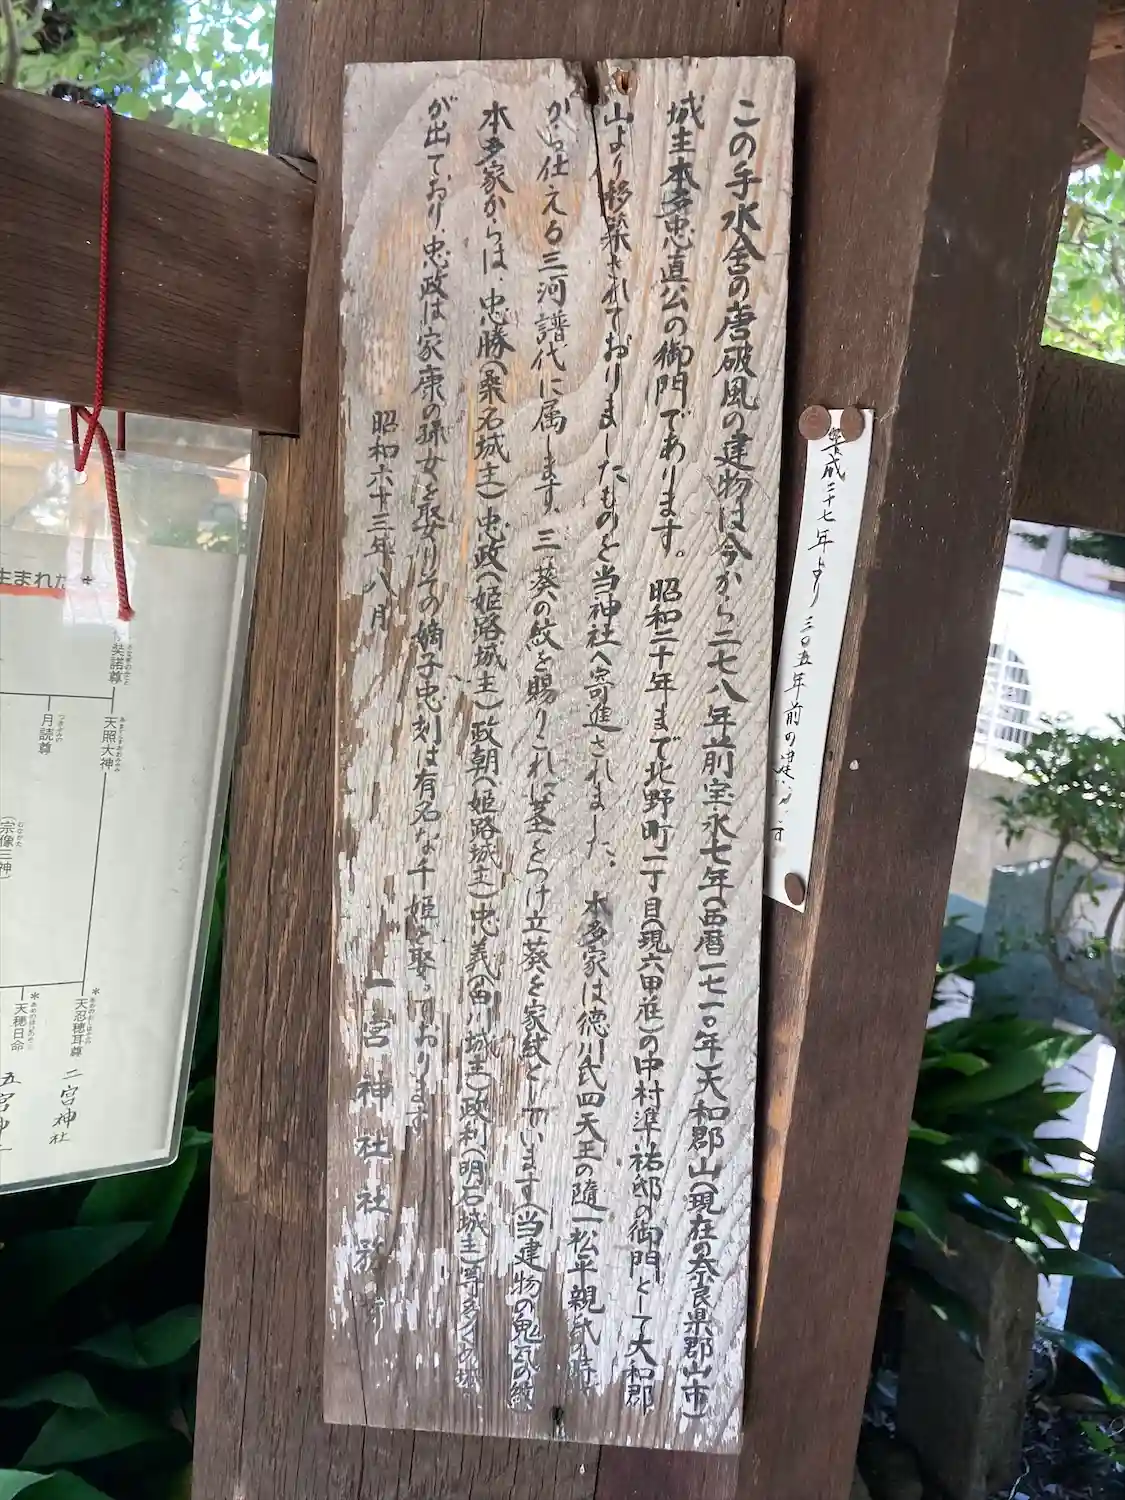 この手水舎の唐破風の建物は今から二七八年前宝永七年(西暦一七一〇年)大和郡山(現在の奈良県郡山市)
城主本多忠直公の御門であります。昭和二十年まで北野町一丁目(現六甲荘)の中村準祐邸の御門として大和郡
山より移築されておりましたものを当神社へ寄進されました、本多家は徳川氏四天王の随一松平親氏の時
から仕える三河譜代に属します、三葵の紋を賜りこれに茎をつけ立葵を家紋としています(当建物の鬼瓦の紋)
本多家からは忠勝(桑名城主)忠政(姫路城主)政朝(姫路城主)忠義(白川城主)政利(明石城主)等多くの城
が出ており忠政は家康の孫女を娶りその嫡子忠刻は有名な千姫を娶っております
昭和六十三年八月
一宮神社社務
平成二十七年より三〇五年前の建
生まれた
弉諾尊
天照大神
あまてらすおおみかみ
月読尊
つきよみの
(宗像三神)
むなかた
*天忍穂耳尊
二宮神社
*天穂日命
五宮神